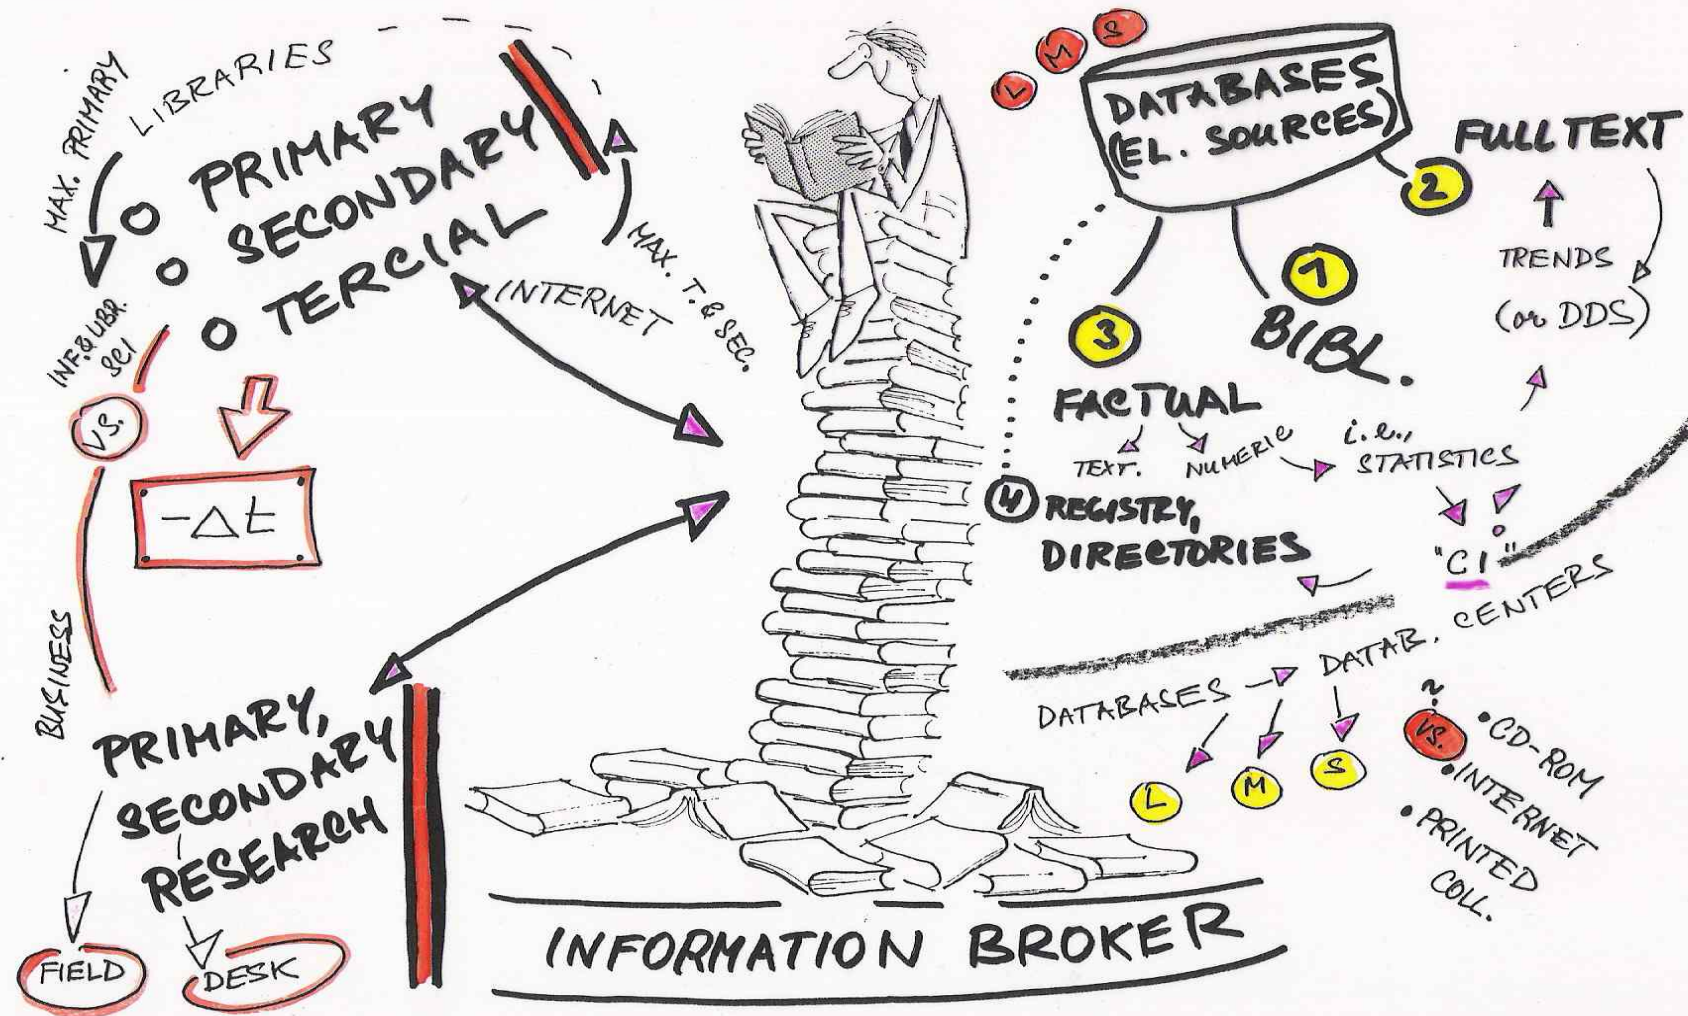 LIBRARIES
MAX. PRIMARY
PRIMARY
SECONDARY
TERCIAL
INTERNET
MAX. T. & SEC.
INF. & LIBR.
SCI
VS.
-Δt
BUSINESS
PRIMARY,
SECONDARY
RESEARCH
FIELD
DESK
INFORMATION BROKER
L
M
S
DATABASES
(EL. SOURCES)
FULLTEXT
2
TRENDS
(or DDS)
1
BIBL.
3
FACTUAL
TEXT.
NUMERIC
i.e.,
STATISTICS
4 REGISTRY,
DIRECTORIES
"CI"
DATABASES
DATAB. CENTERS
L
M
S
~
VS.
• CD-ROM
• INTERNET
• PRINTED
COLL.